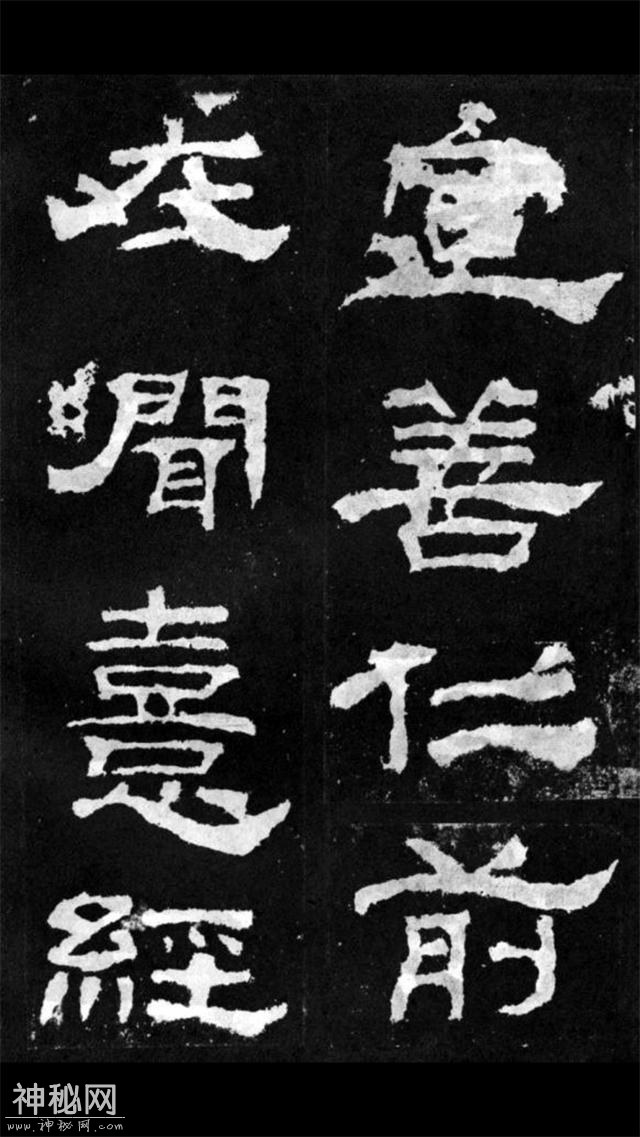 宣善仁前
憙經
神秘网
www.神秘网.com